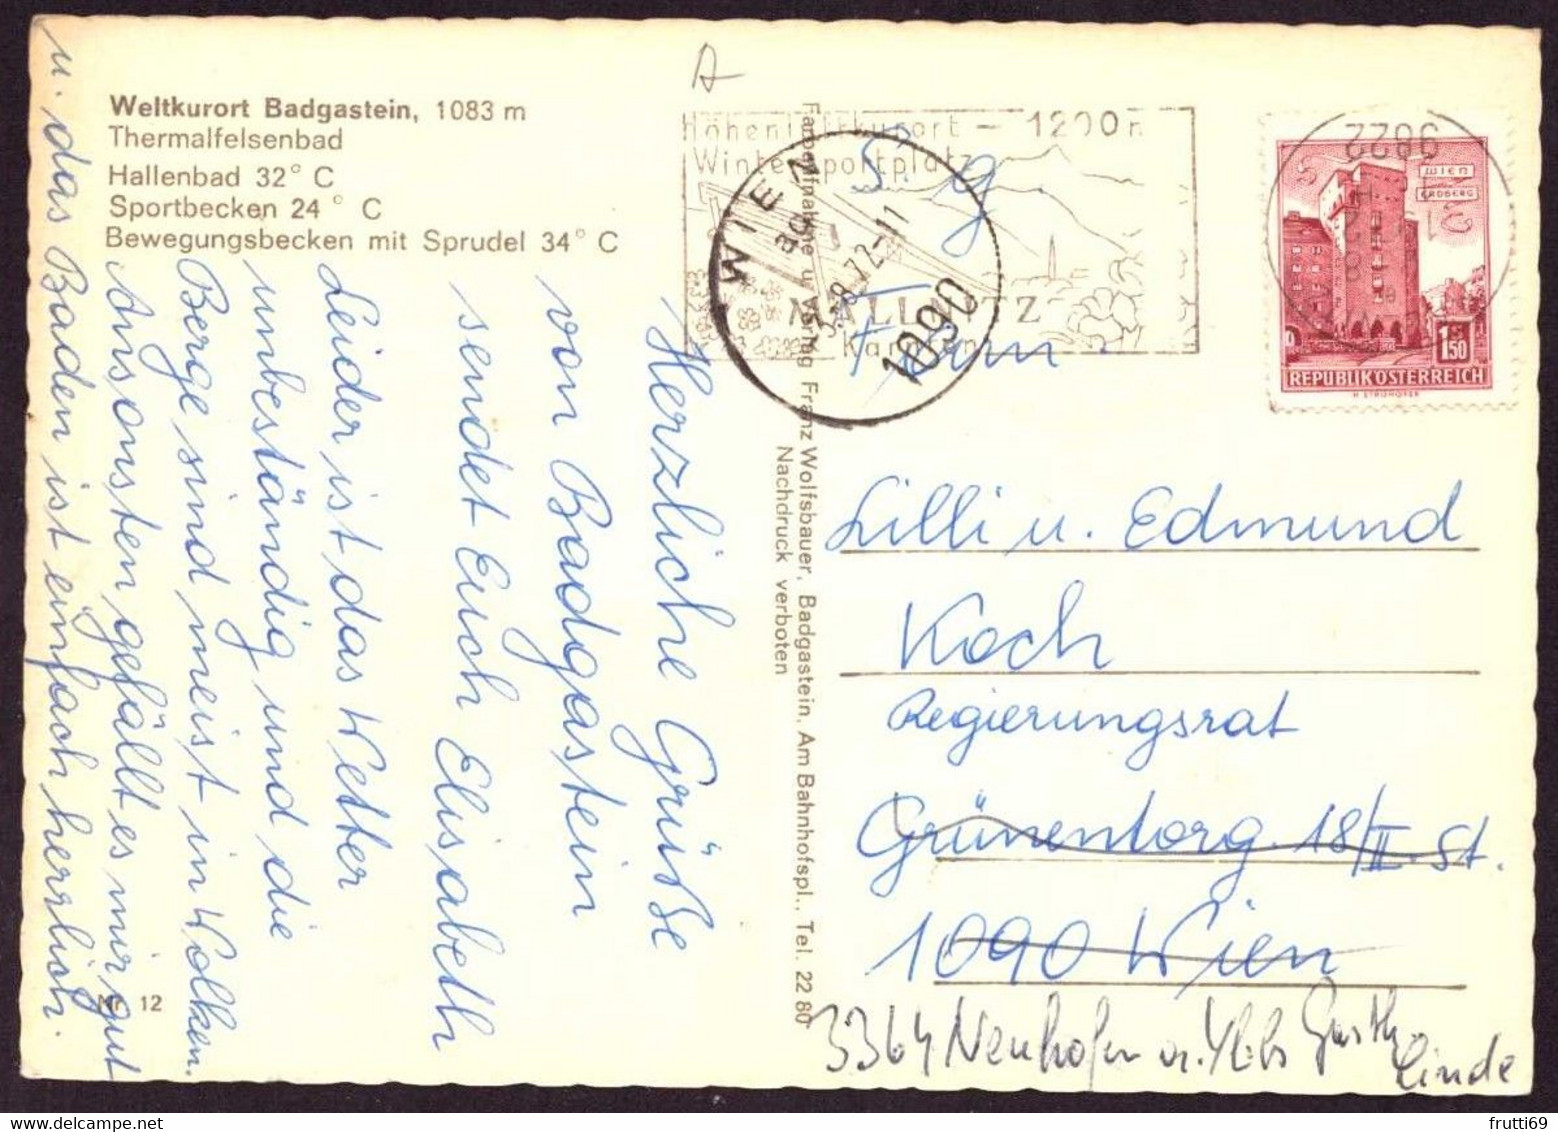 Weltkurort Badgastein, 1083 m
Thermalfelsenbad
Hallenbad 32° C
Sportbecken 24° C
Bewegungsbecken mit Sprudel 34° C
Herzliche Grüße
von Badgastein
sendet Euch Elisabeth
Leider ist das Wetter
unbeständig und die
Berge sind meist in Wolken.
Ansonsten gefällt es mir gut
u. das Baden ist einfach herrlich.
Nr. 12
Farbaufnahme u. Verlag Franz Wolfsbauer, Badgastein, Am Bahnhofspl., Tel. 22 80
Nachdruck verboten
Höhenluftkurort - 1200 m
Wintersportplatz
MALLNITZ
Kärnten
WIEN
-8.72-11
1090
9822
WIEN
ERDBERG
1.50
REPUBLIK ÖSTERREICH
S. g.
Fam.
Lilli u. Edmund
Koch
Regierungsrat
Grünentorg. 18/II. St.
1090 Wien
3364 Neuhofen a. Ybbs Gasth
Linde
frutti69